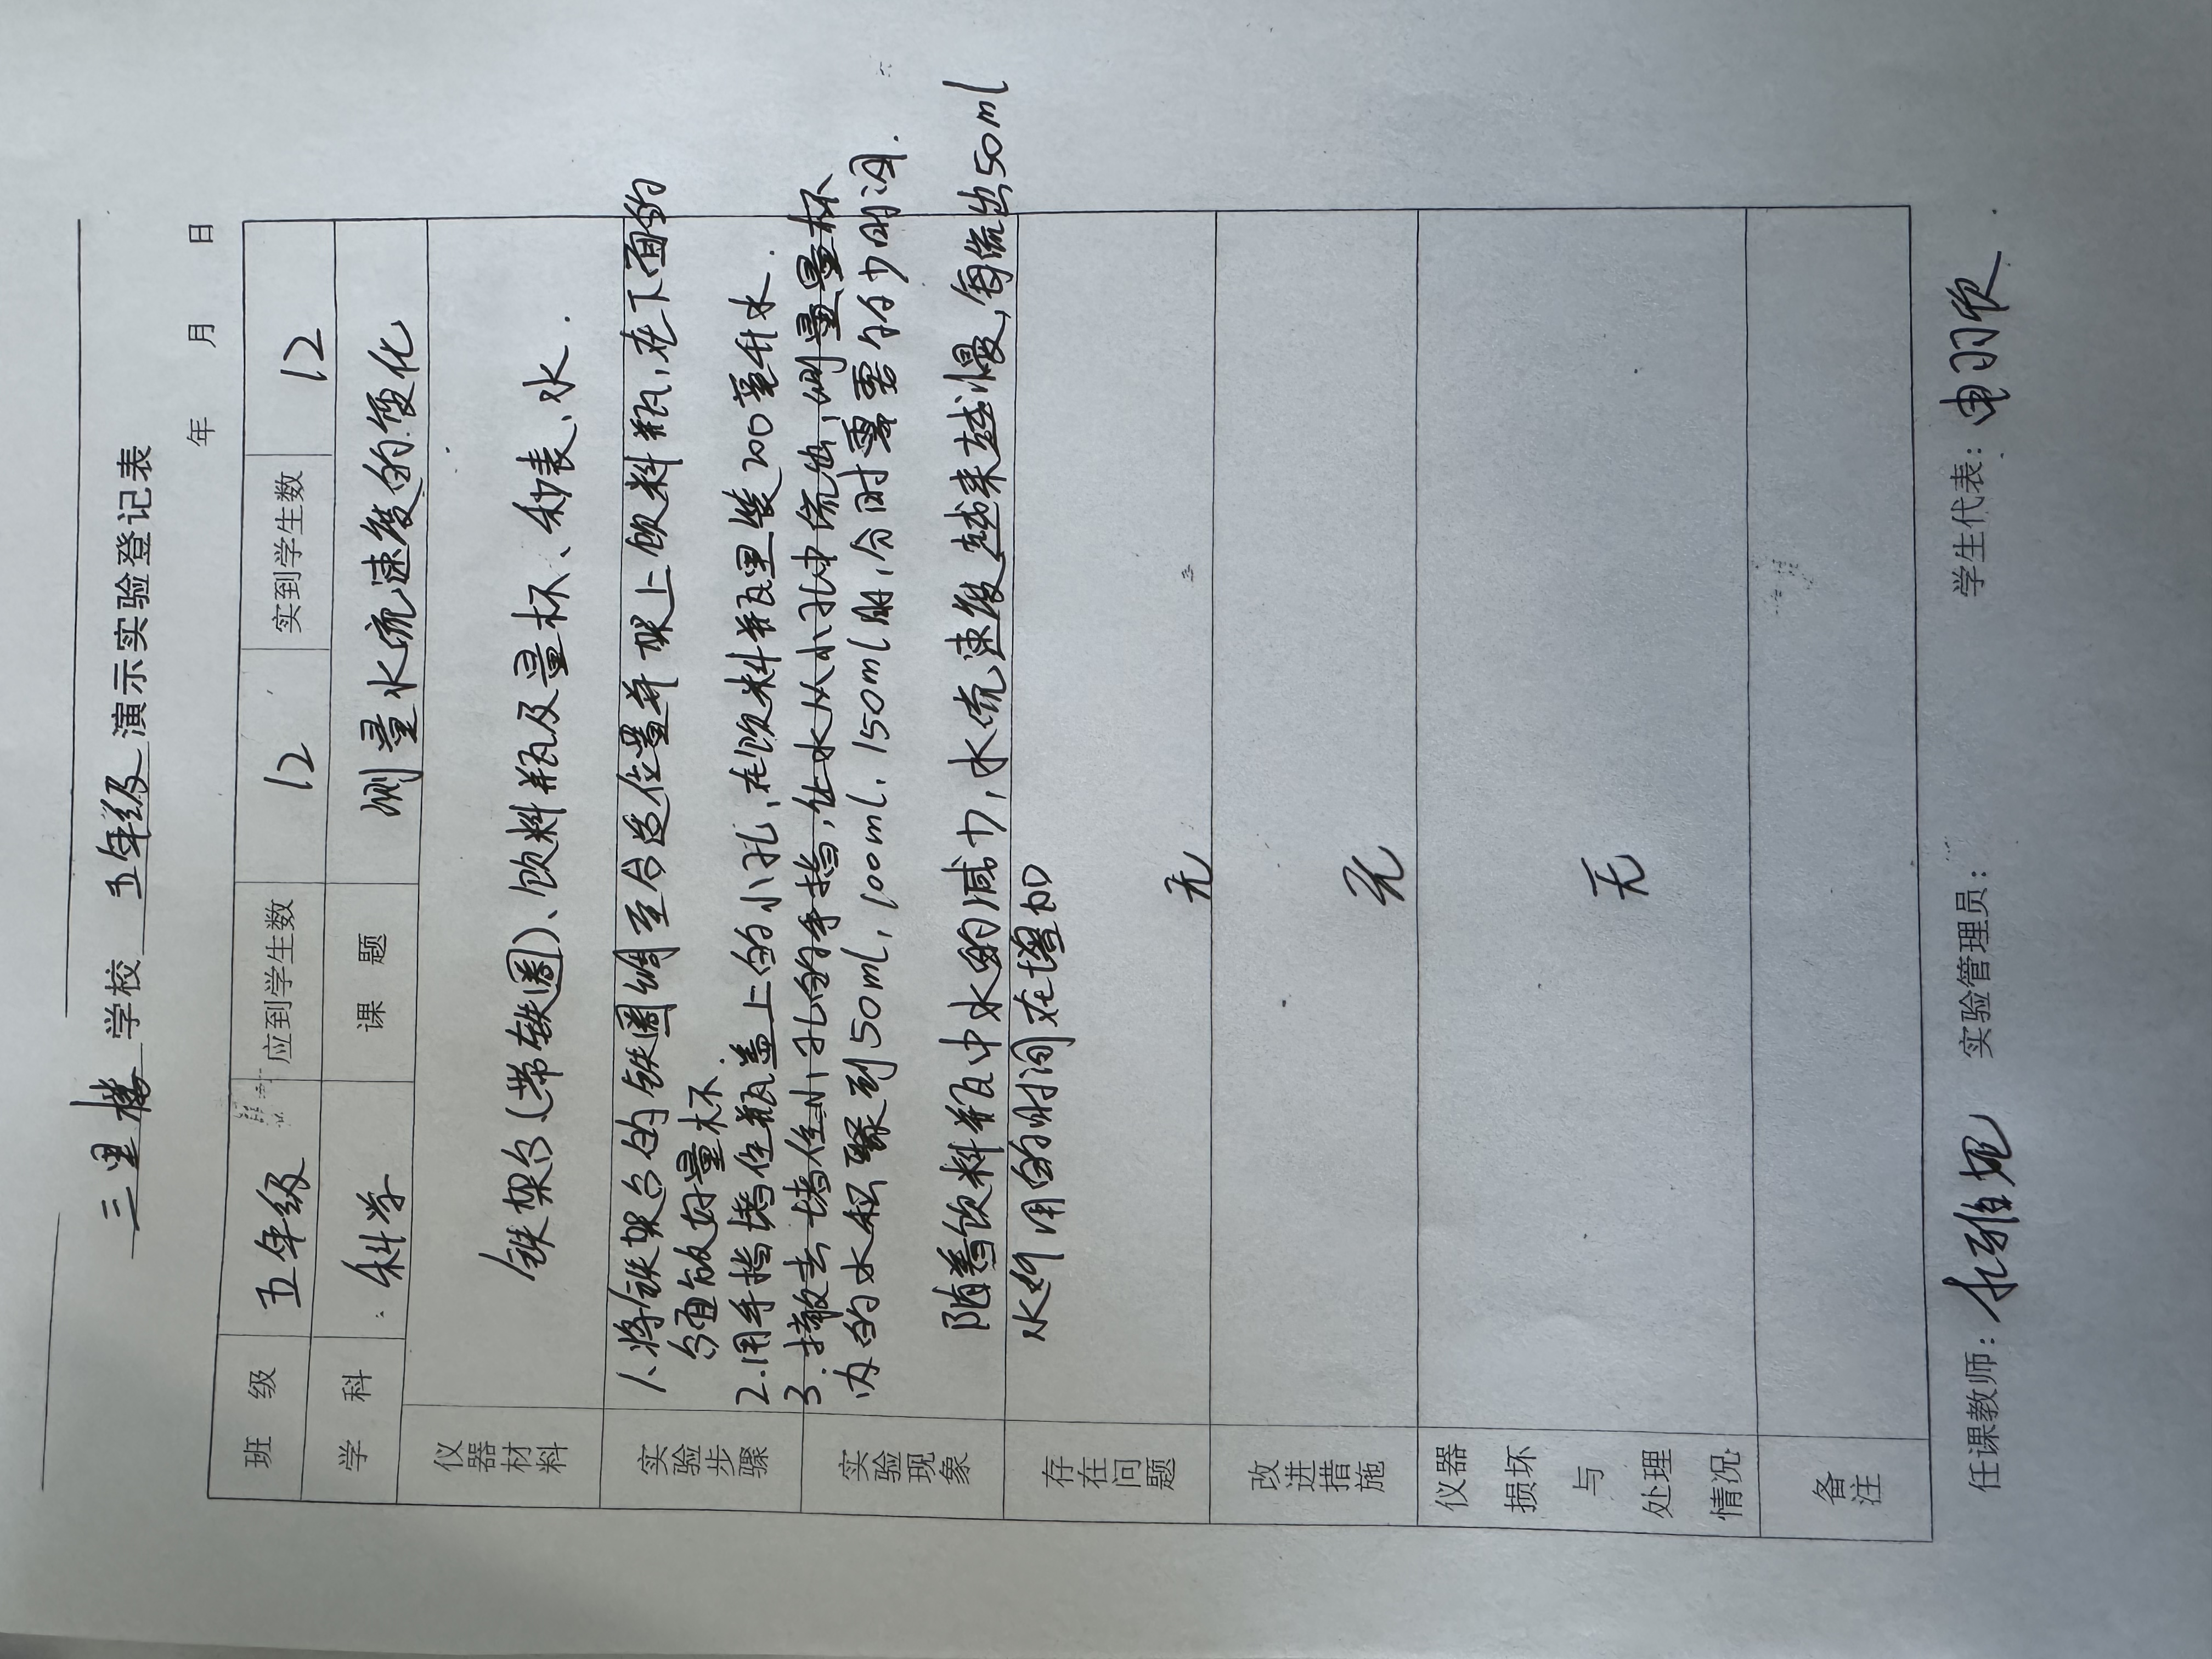 三里楼 学校 五年级 演示实验登记表
年 月 日
班 级 五年级 应到学生数 12 实到学生数 12
学 科 科学 课 题 测量水流速度的变化
仪器材料 铁架台(带铁圈)、饮料瓶及量杯、秒表、水.
实验步骤
1、将铁架台的铁圈调至合适位置并架上饮料瓶,在下面的
台面放好量杯.
2.用手指堵住瓶盖上的小孔,在饮料瓶里装200毫升水.
3.撤去堵住小孔的手指,让水从小孔中流出,测量量杯
内的水积聚到50ml,100ml,150ml时,分时需要的少时间.
实验现象
随着饮料瓶中水的减少,水流速度越来越慢,每流出50ml
水所用的时间在增加
存在问题 无
改进措施 无
仪器损坏与处理情况 无
备注
任课教师: 实验管理员: 学生代表: 申羽欣